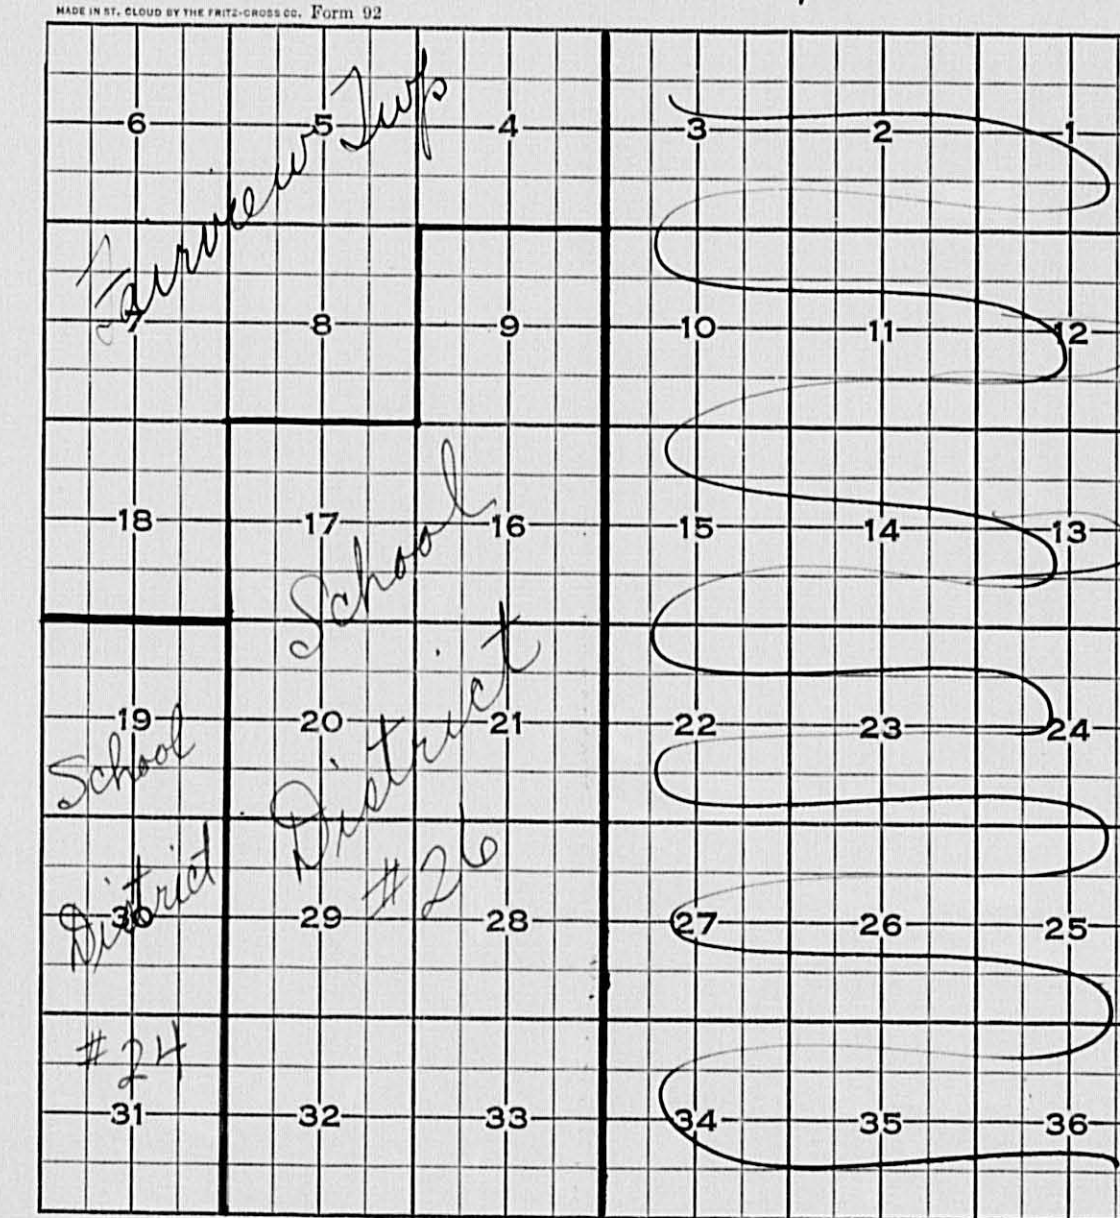 MADE IN ST. CLOUD BY THE FRITZ-CROSS CO. Form 92
6 5 4 3 2 1
Fairview Twp
7 8 9 10 11 12
18 17 16 15 14 13
School
District
#26
19 20 21 22 23 24
School
District
#24
30 29 28 27 26 25
31 32 33 34 35 36